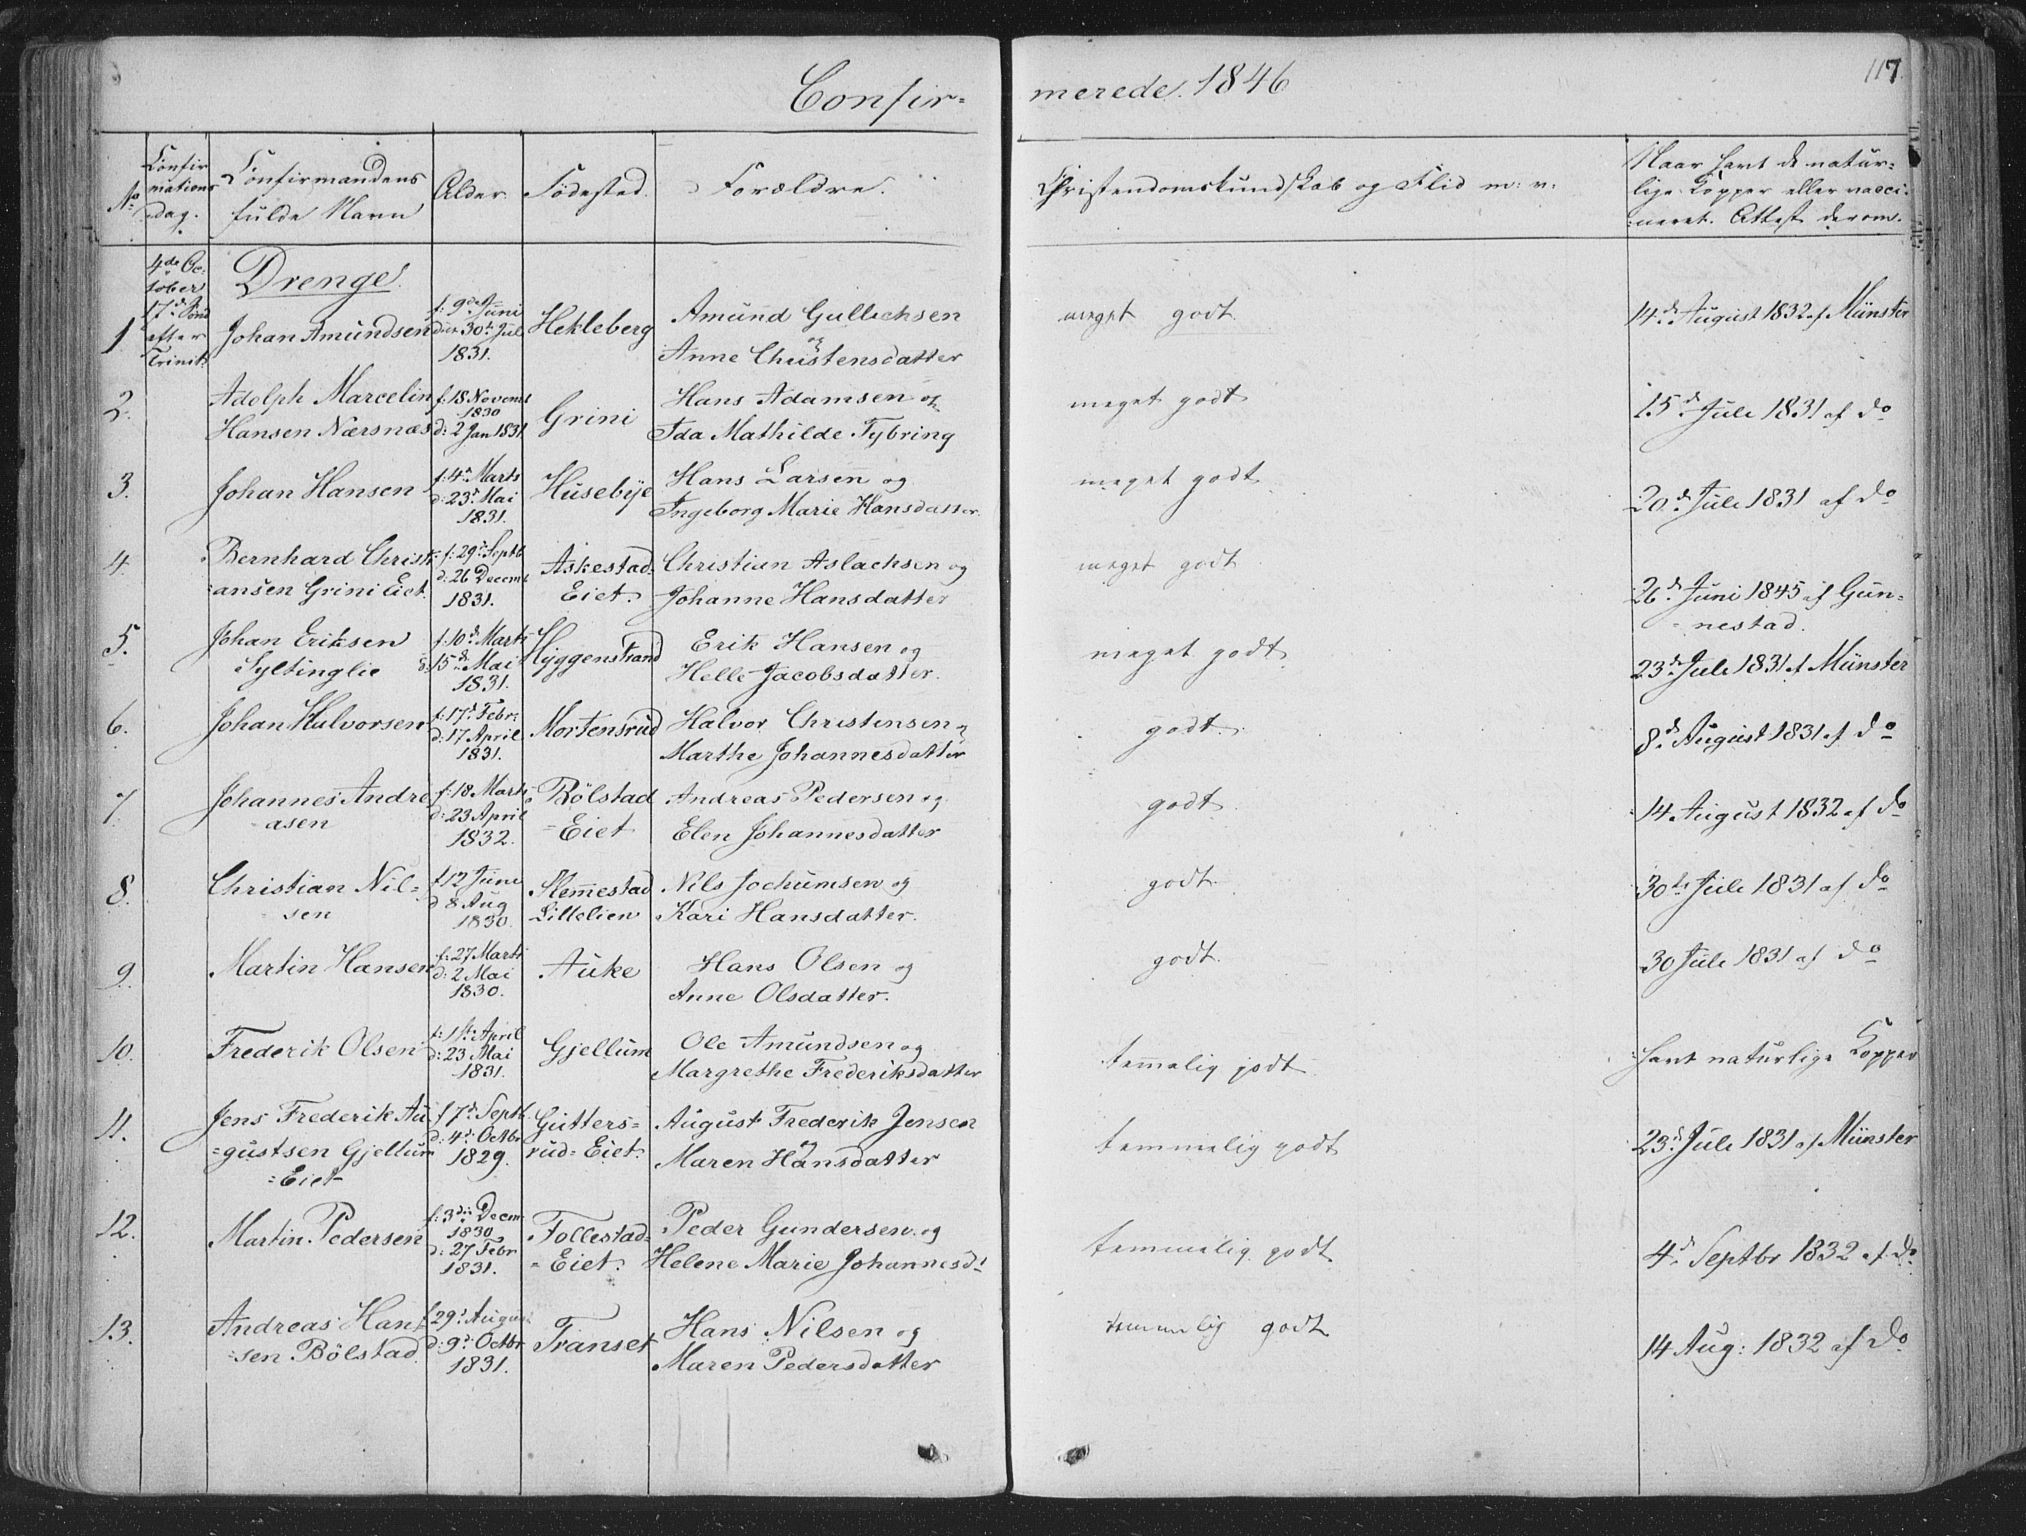 Confir=
merede. 1846
117
No
Confir
mations
dag.
Confirmandens
fulde Navn
Alder
Fødested.
Forældre.
Christendomskundskab og Flid m: v:
Naar havt de natur=
lige Kopper eller vacci=
neret. Attest derom.
4de Oc=
tober
17de Sønd
efter
Trinit:
Drenge.
1
Johan Amundsen
f: 9de Juni
døbt 30te Jul
1831.
Hekleberg
Amund Gullichsen
og
Anne Christensdatter
meget godt
14de August 1832 af Münster
2.
Adolph Marcelin
Hansen Nærsnæs
f: 18 Novemb
1830
d: 2 Jan 1831
Grini
Hans Adamsen og
Ida Mathilde Tybring
meget godt
15de Juli 1831 af do
3.
Johan Hansen
f: 4de Marts
d: 23de Mai
1831.
Husebye
Hans Larsen og
Ingeborg Marie Hansdatter
meget godt
20de Juli 1831 af do
4.
Bernhard Christi
=ansen Grini Eiet.
f: 29de Septb
d: 26 Decemb
1831.
Askestad=
Eiet.
Christian Aslachsen og
Johanne Hansdatter
meget godt
26de Juni 1845 af Gun=
nestad.
5.
Johan Eriksen
Syltinglie
f: 10de Marts
d: 15de Mai
1831.
Hyggenstrand
Erik Hansen og
Helle Jacobsdatter.
meget godt
23de Juli 1831 af Münster
6.
Johan Halvorsen
f: 17de Febr:
d: 17 April
1831.
Mortensrud
Halvor Christensen og
Marthe Johannesdatter
godt.
8de August 1831 af do
7
Johannes Andre
asen
f: 18 Marts
d: 23 April
1832.
Bölstad
=Eiet
Andreas Pedersen og
Elen Johannesdatter
godt
14 August 1832 af do
8.
Christian Nil=
sen
f 12 Juni
d 8 Aug
1830.
Slemmestad
Lillelien
Nils Jochumsen og
Kari Hansdatter.
godt.
30te Juli 1831 af do
9.
Martin Hansen
f: 27 Marts
d: 2 Mai
1830.
Auke
Hans Olsen og
Anne Olsdatter.
godt.
30 Juli 1831 af do
10.
Frederik Olsen
f: 1ste April
d: 23 Mai
1831.
Gjellum
Ole Amundsen og
Margrethe Frederiksdatter
temmelig godt
havt naturlige Kopper
11.
Jens Frederik Au
=gustsen Gjellum
=Eiet
f 7de Septb.
d: 4de Octbr
1829.
Gutters=
rud=Eiet.
August Frederik Jensen
og
Maren Hansdatter
temmelig godt
23de Juli 1831 af Münster
12.
Martin Pedersen
f: 3die Decm
1830
d: 27 Febr
1831.
Follestad=
=Eiet.
Peder Gundersen og
Helene Marie Johannesdt
temmelig godt
4de Septbr 1832 af do
13.
Andreas Han
=sen Bölstad
f 29de August
d: 9de Octbr
1831.
Transet
Hans Nilsen og
Maren Pedersdatter
temmelig godt
14 Aug: 1832 af do